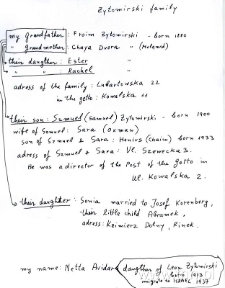 Zytomirski family
my Grandfather : Froim Zytomirski - born 1880
" Grandmother : Chaya Dvora " (Melamed)
their daugther : Ester "
" " Rachel "
adress of the family : Lubartowska 22
in the getto : Kowalska 11
their son : Samuel (Samuel) Zytomirski - born 1900
wife of Samuel : Sara (Oxman)
son of Samuel & Sara : Henius (chaim) born 1933
adress of Samuel & Sara : Ul. Szewska 3.
He was a director of the Post of the getto in
Ul. Kowalska 2.
their daugther : Sonia married to Josef Korenberg,
their little child Abramek,
adress : Kaimierz Dolny, Rinek.
my name : Netta Avidar daugther of Leon Zytomirski
migrate to ISRAEL 1937